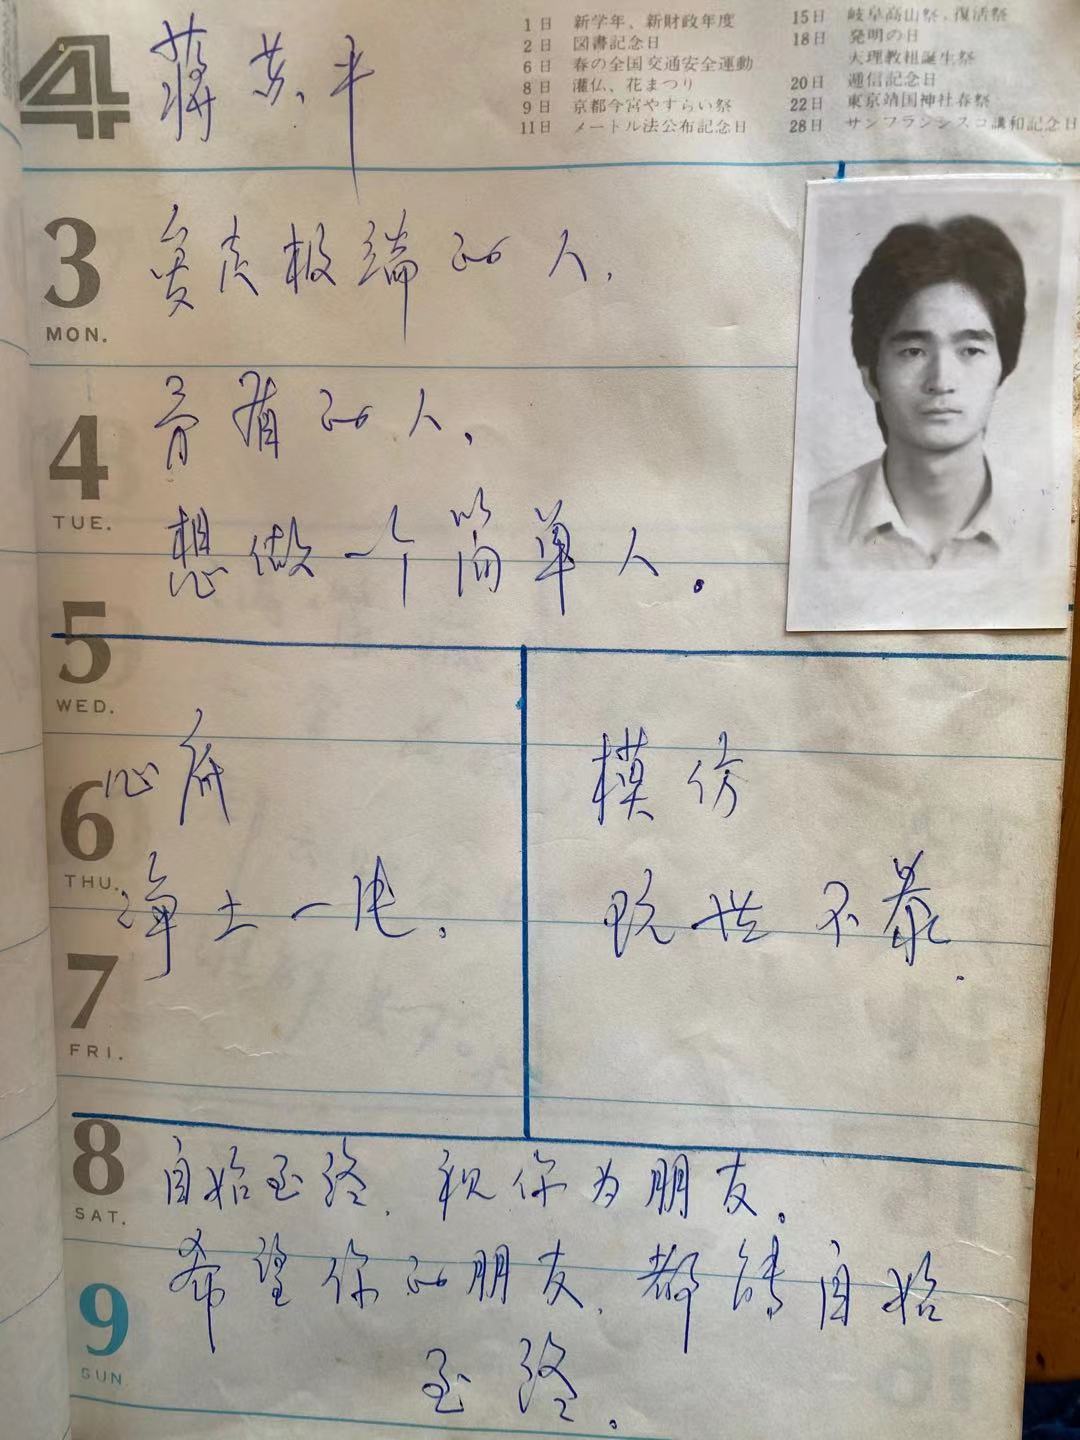 4
1日 新学年、新財政年度
2日 図書記念日
6日 春の全国交通安全運動
8日 灌仏、花まつり
9日 京都今宮やすらい祭
11日 メートル法公布記念日
15日 岐阜高山祭、復活祭
18日 発明の日
天理教祖誕生祭
20日 逓信記念日
22日 東京靖国神社春祭
28日 サンフランシスコ講和記念日
蒋 平
3
MON.
极端的人,
4
TUE.
有的人,
想做一个简单人。
5
WED.
6
THU.
7
FRI.
心底
净土一
模仿
玩世不
8
SAT.
自始至终,视你为朋友。
9
SUN
希望你的朋友,都能自始
至终。